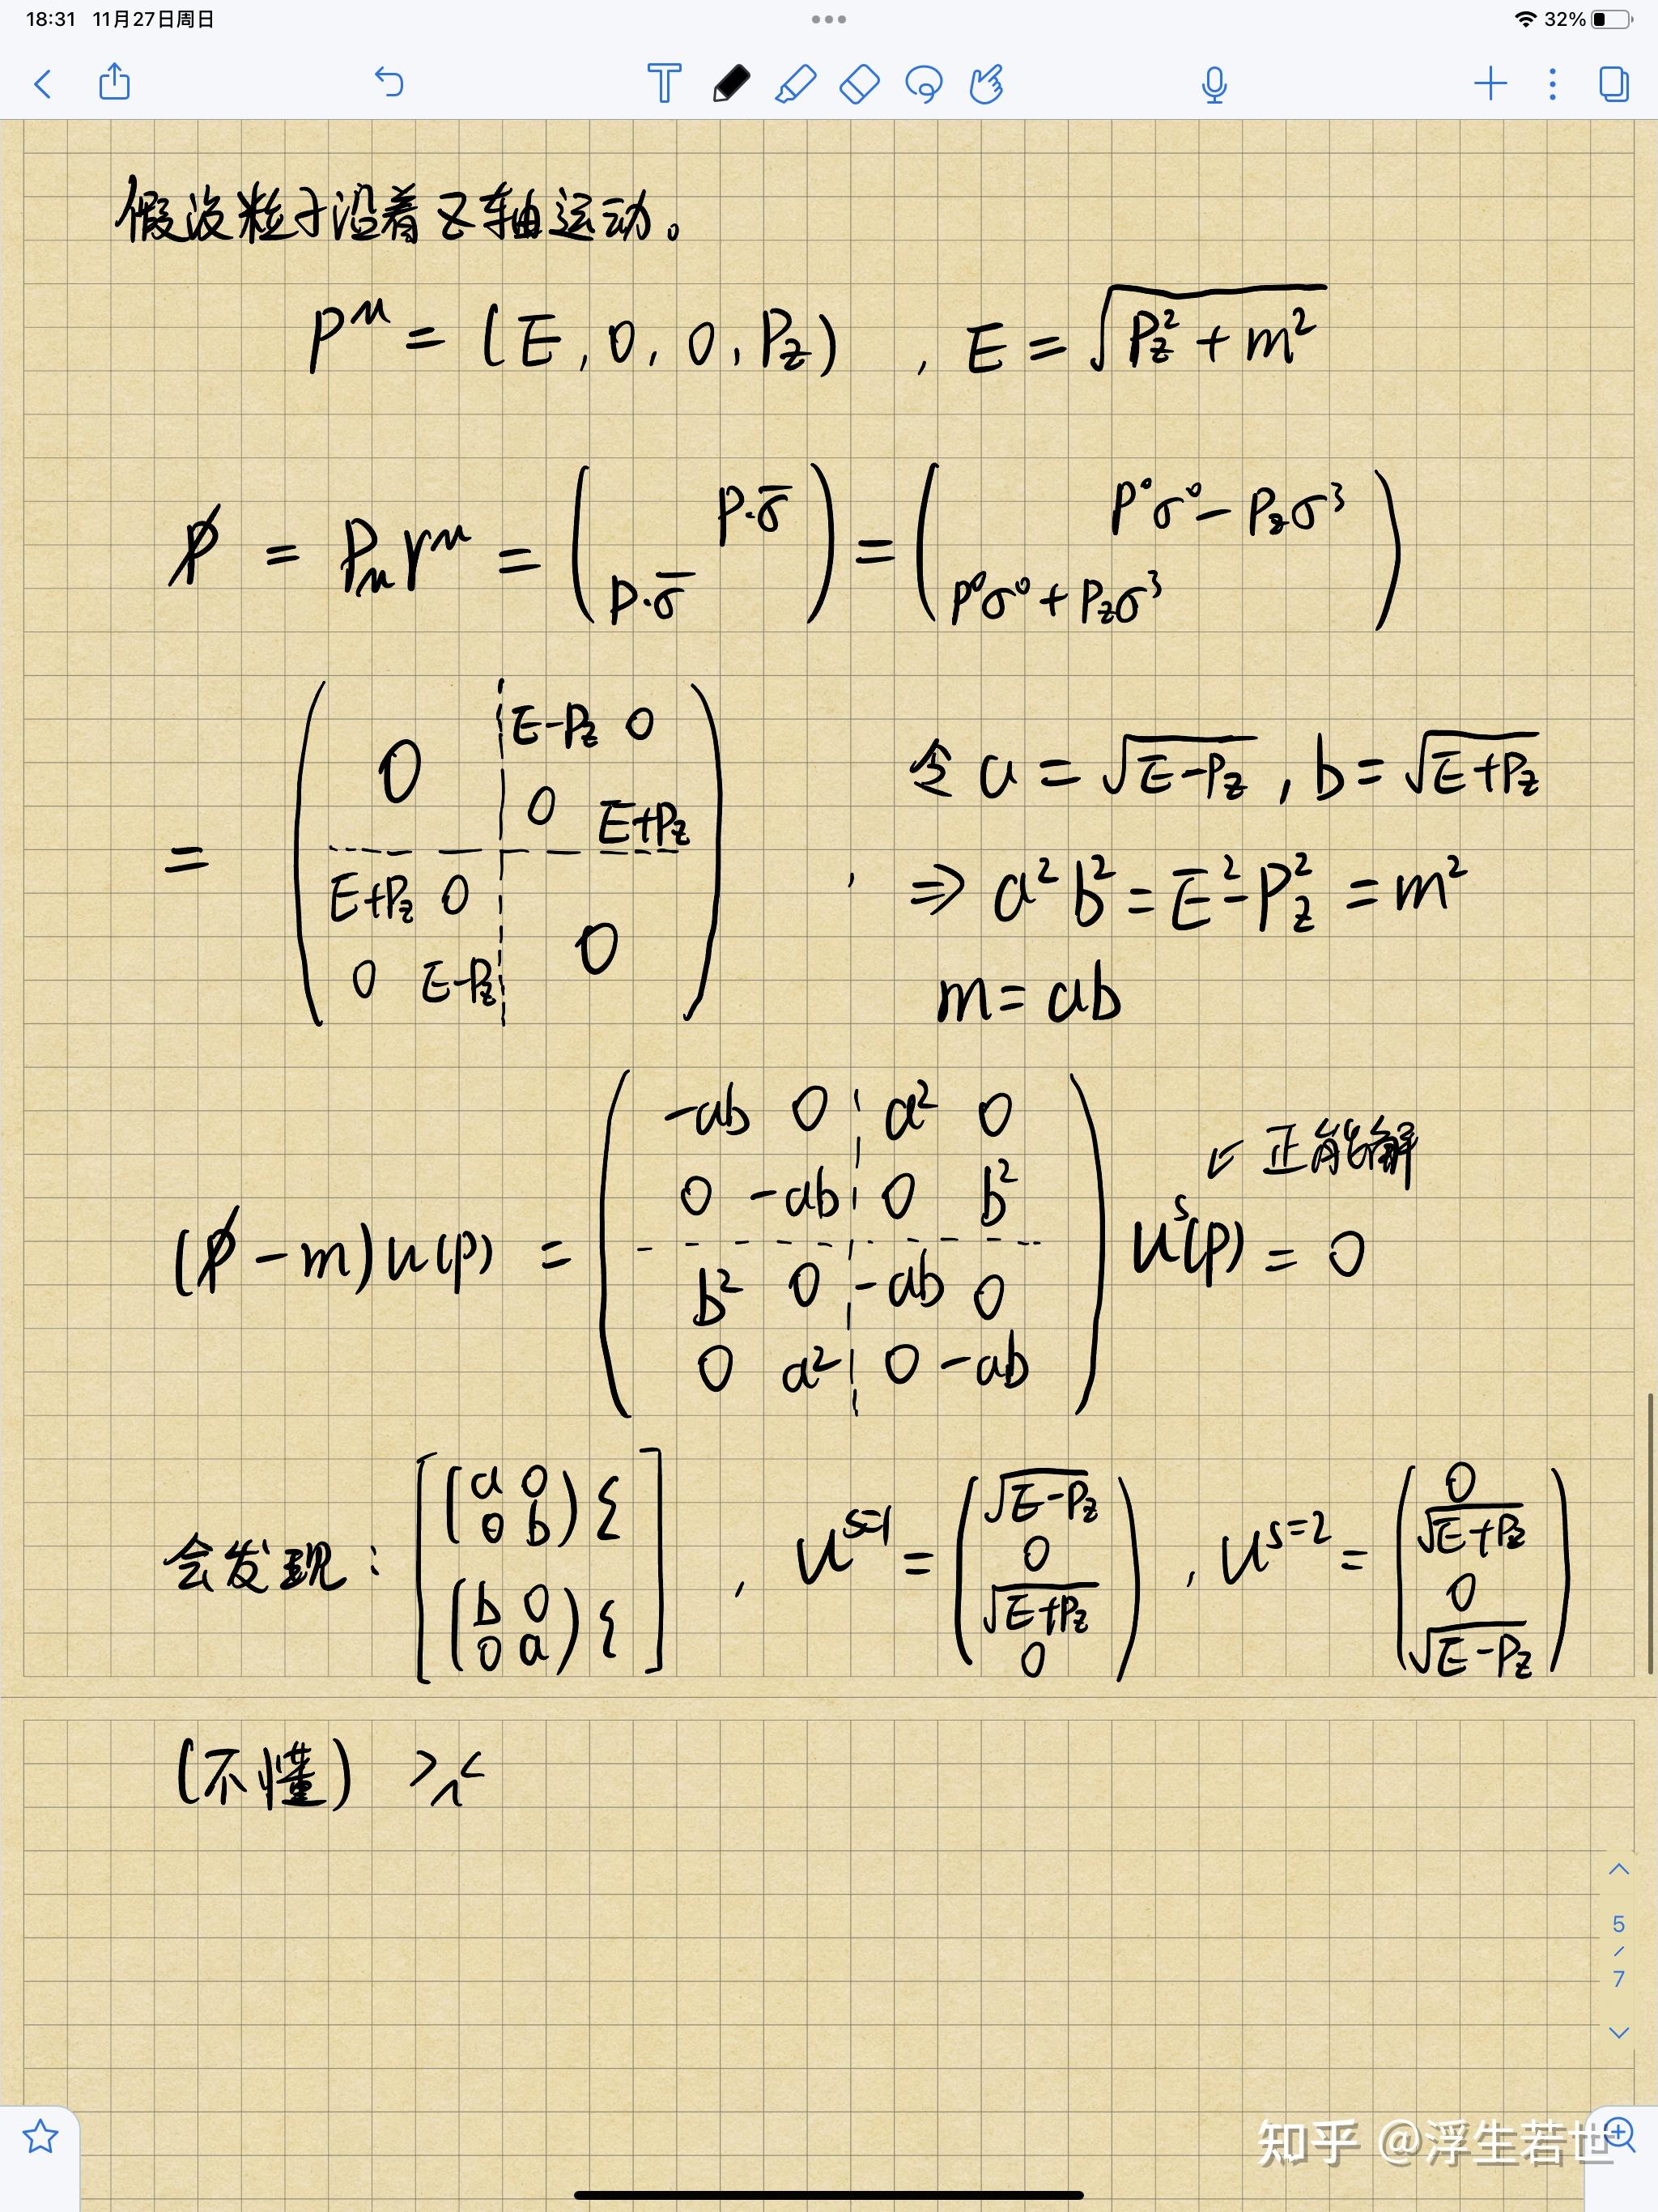 18:31 11月27日周日
32%
假设粒子沿着Z轴运动。
P^μ = (E, 0, 0, P_z) , E = √(P_z² + m²)
p̸ = P_μ γ^μ = ( p·σ̄ ) = ( P⁰σ⁰ − P_zσ³ )
p·σ̄ P⁰σ⁰ + P_zσ³
= ( 0 E−P_z 0
0 E+P_z
E+P_z 0 0
0 E−P_z )
, 令 a = √(E−P_z) , b = √(E+P_z)
⇒ a²b² = E² − P_z² = m²
m = ab
(p̸ − m) u(p) = ( −ab 0 a² 0
0 −ab 0 b²
b² 0 −ab 0
0 a² 0 −ab ) u^s(p) = 0
↙ 正能解
会发现: [ (a 0
0 b) ξ
(b 0
0 a) ξ ]
, u^{s=1} = ( √(E−P_z)
0
√(E+P_z)
0 )
, u^{s=2} = ( 0
√(E+P_z)
0
√(E−P_z) )
(不懂) >人<
5
/
7
知乎 @浮生若世